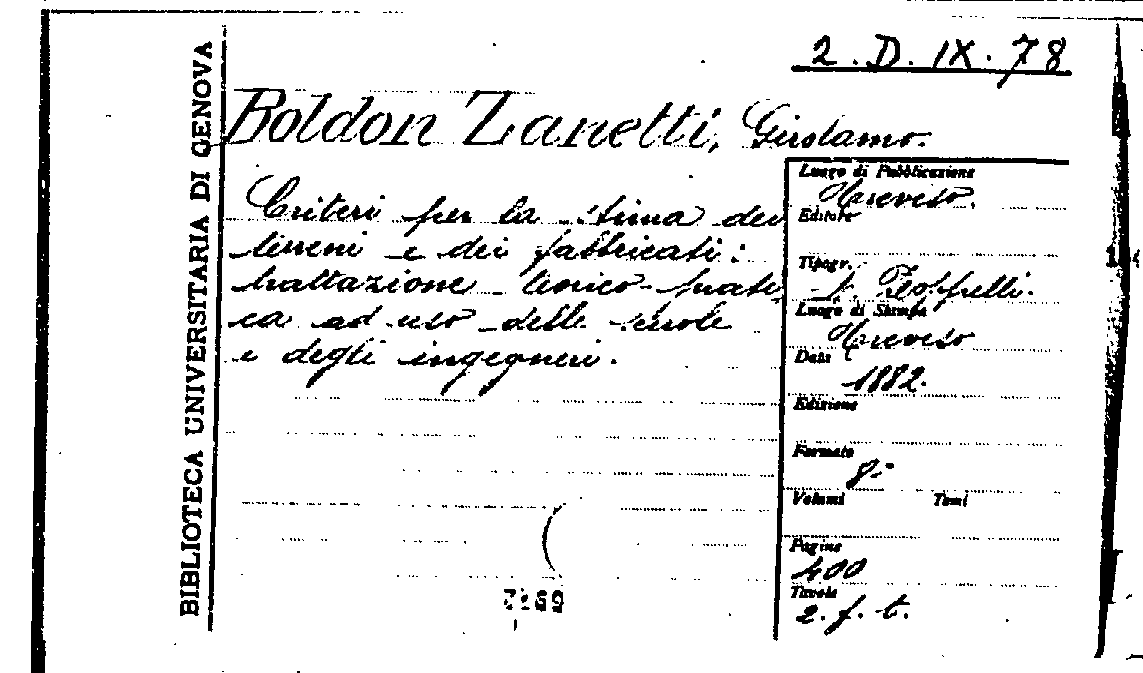 2. D. IX. 78
BIBLIOTECA UNIVERSITARIA DI GENOVA
Boldon Zanetti, Girolamo.
Criteri per la stima dei
terreni e dei fabbricati:
trattazione teorico-prati
ca ad uso delle scuole
e degli ingegneri.
Luogo di Pubblicazione
Treviso.
Editore
Tipogr.
L. Zoppelli.
Luogo di Stampa
Treviso
Data
1882.
Edizione
Formato
8°
Volumi Tomi
Pagine
400
Tavole
2. f. t.